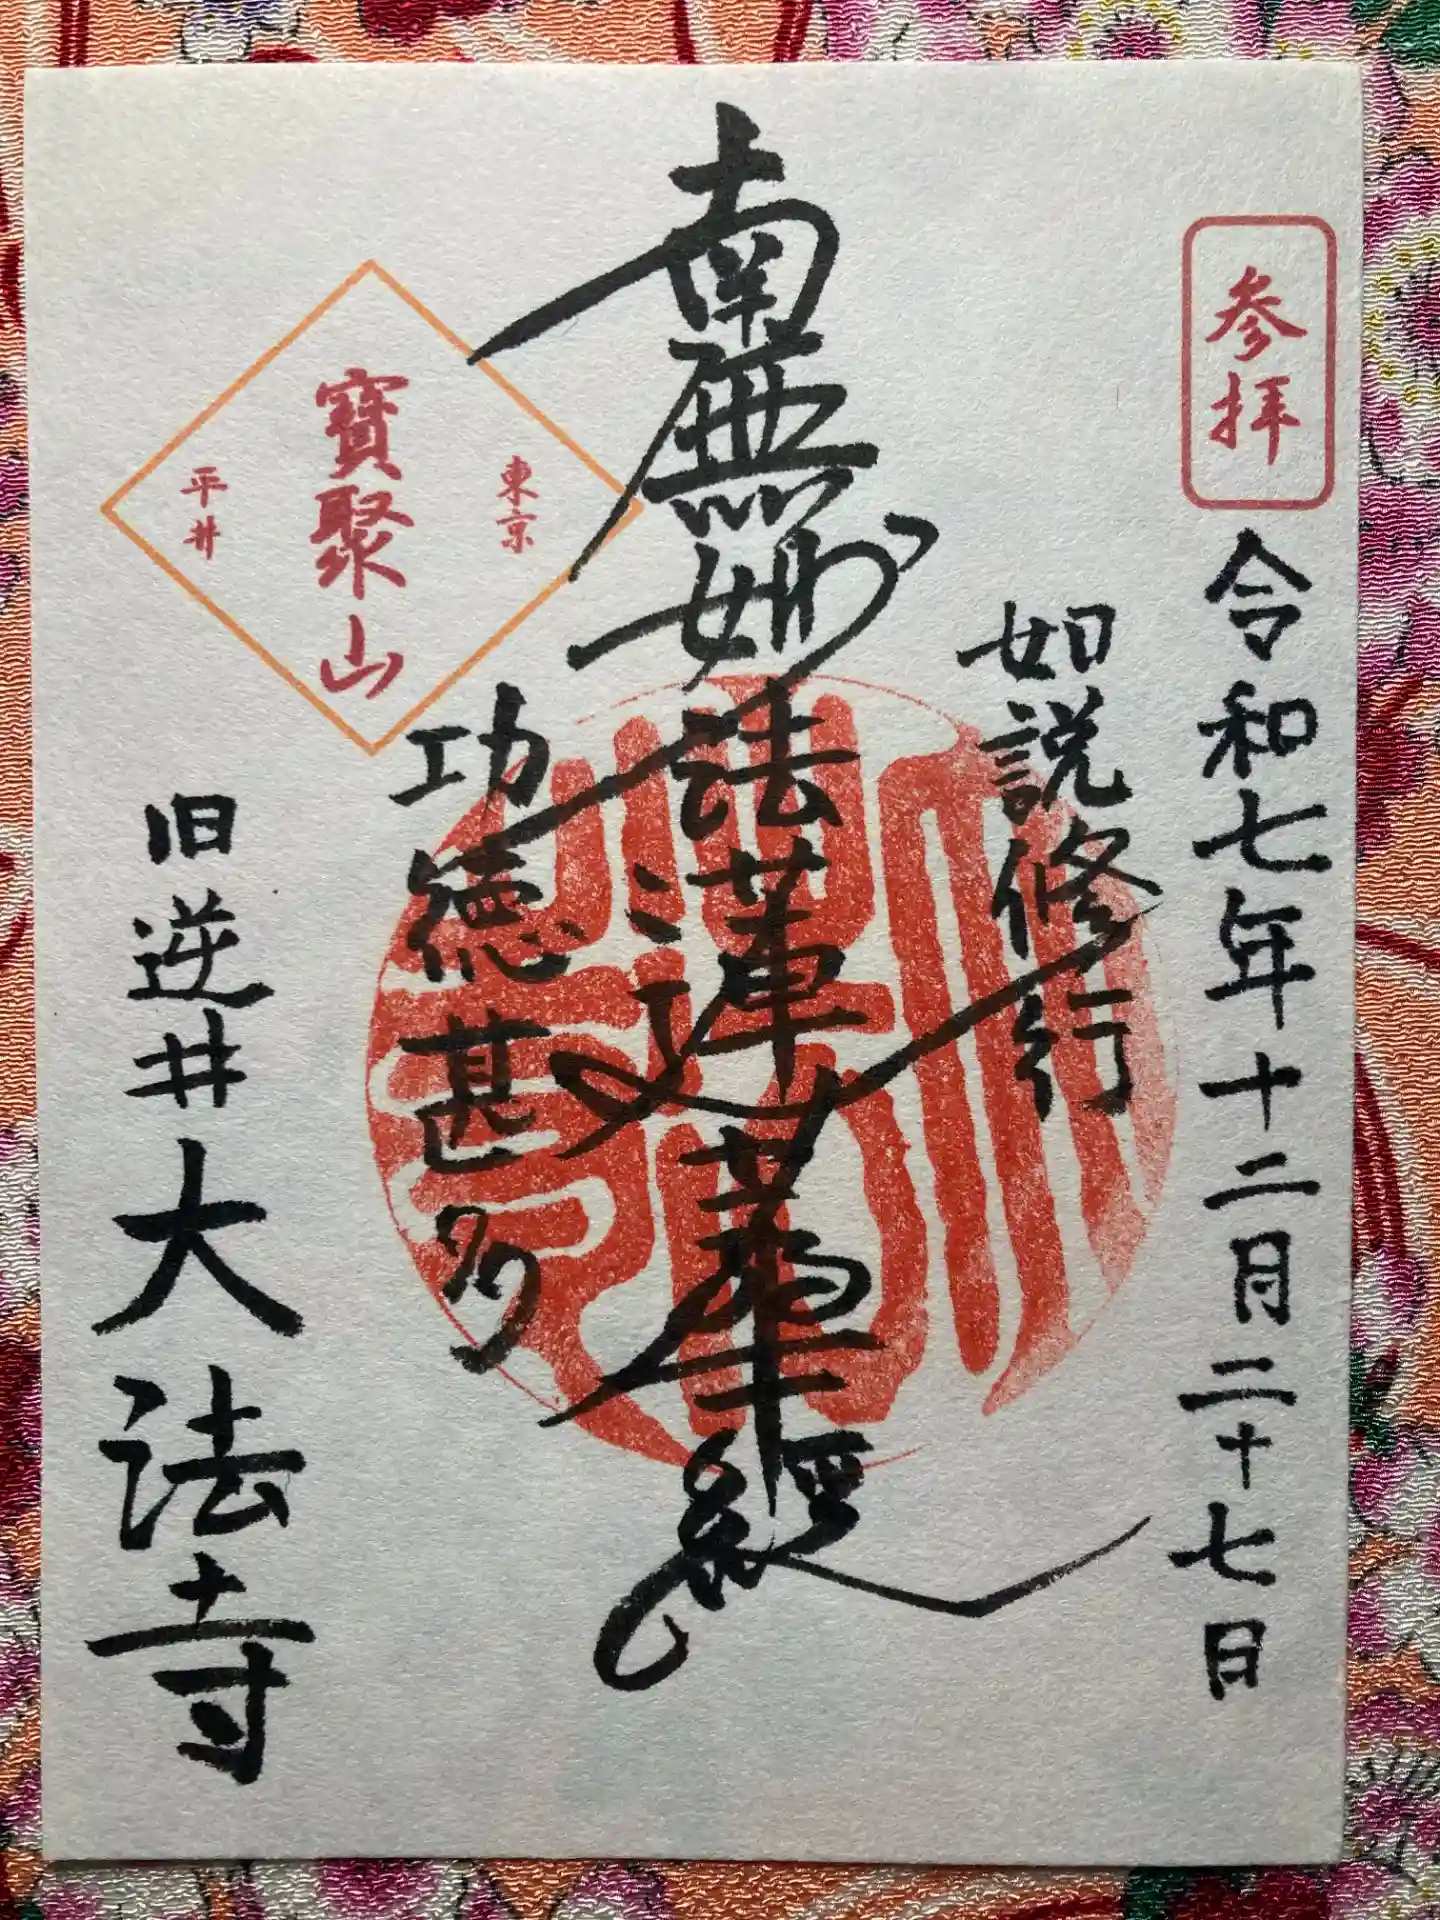 参拝
令和七年十二月二十七日
如説修行
南無妙法蓮華經
功徳甚多
東京
寳聚山
平井
旧逆井
大法寺